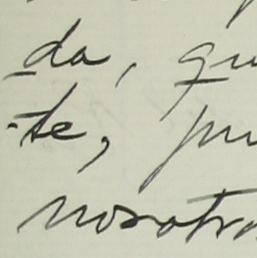 da, qu
te, pu
nosotr